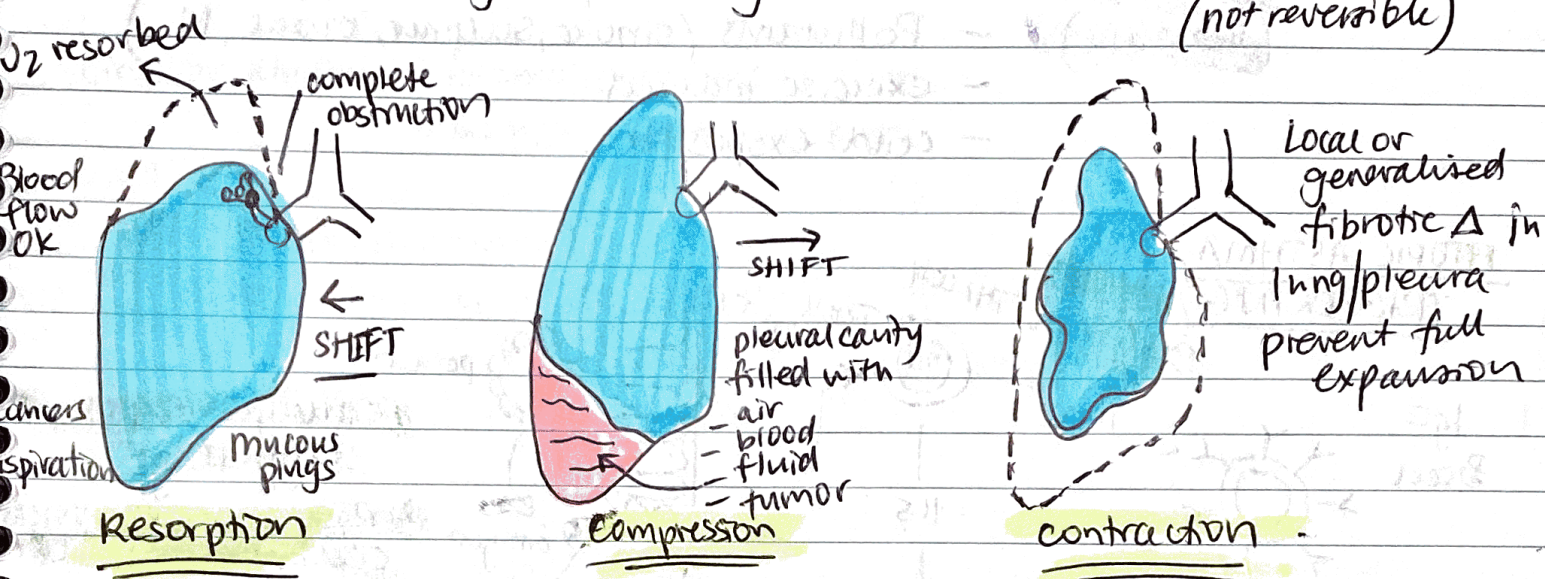 (not reversible)
O₂ resorbed
complete
obstruction
Blood
flow
OK
SHIFT
ancers
spiration
mucous
plugs
Resorption
SHIFT
pleural cavity
filled with
- air
- blood
- fluid
- tumor
Compression
Local or
generalised
fibrotic Δ in
lung/pleura
prevent full
expansion
contraction.